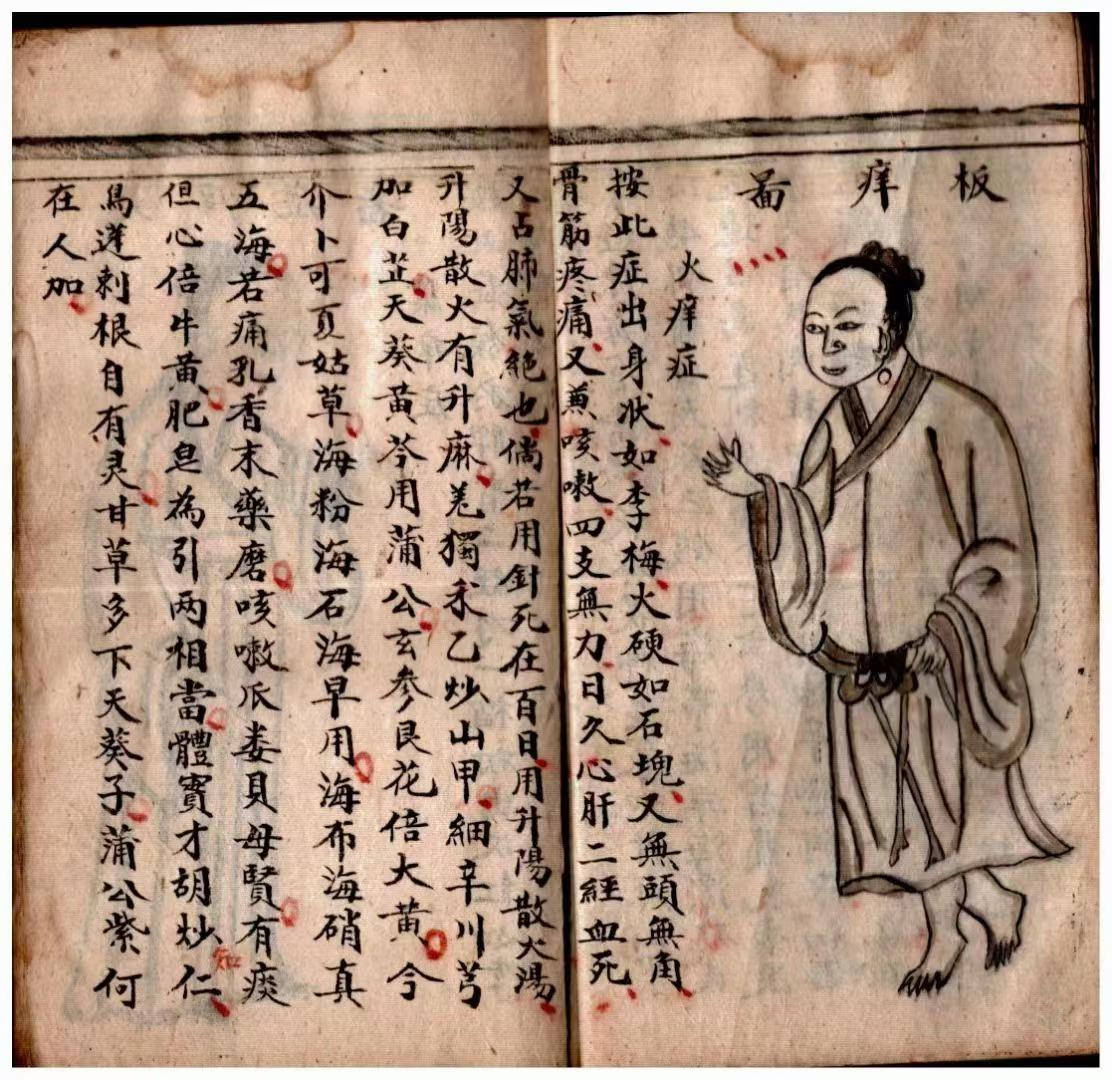 板痒啚
火痒症
按此症出身状如李梅火硬如石塊又無頭無角
骨筋疼痛又兼咳嗽四支無力日久心肝二經血死
又占肺氣絕也倘若用針死在百日用升陽散火湯
升陽散火有升麻羌獨禾乙炒山甲細辛川芎
加白芷天葵黃芩用蒲公玄参艮花倍大黄今
介卜可夏姑草海粉海石海早用海布海硝真
五海若痛乳香末藥磨咳嗽瓜娄貝母賢有痰
但心倍牛黄肥皂為引两相當體實才胡炒仁
知
馬蓮刺根自有灵甘草多下天葵子蒲公紫何
在人加